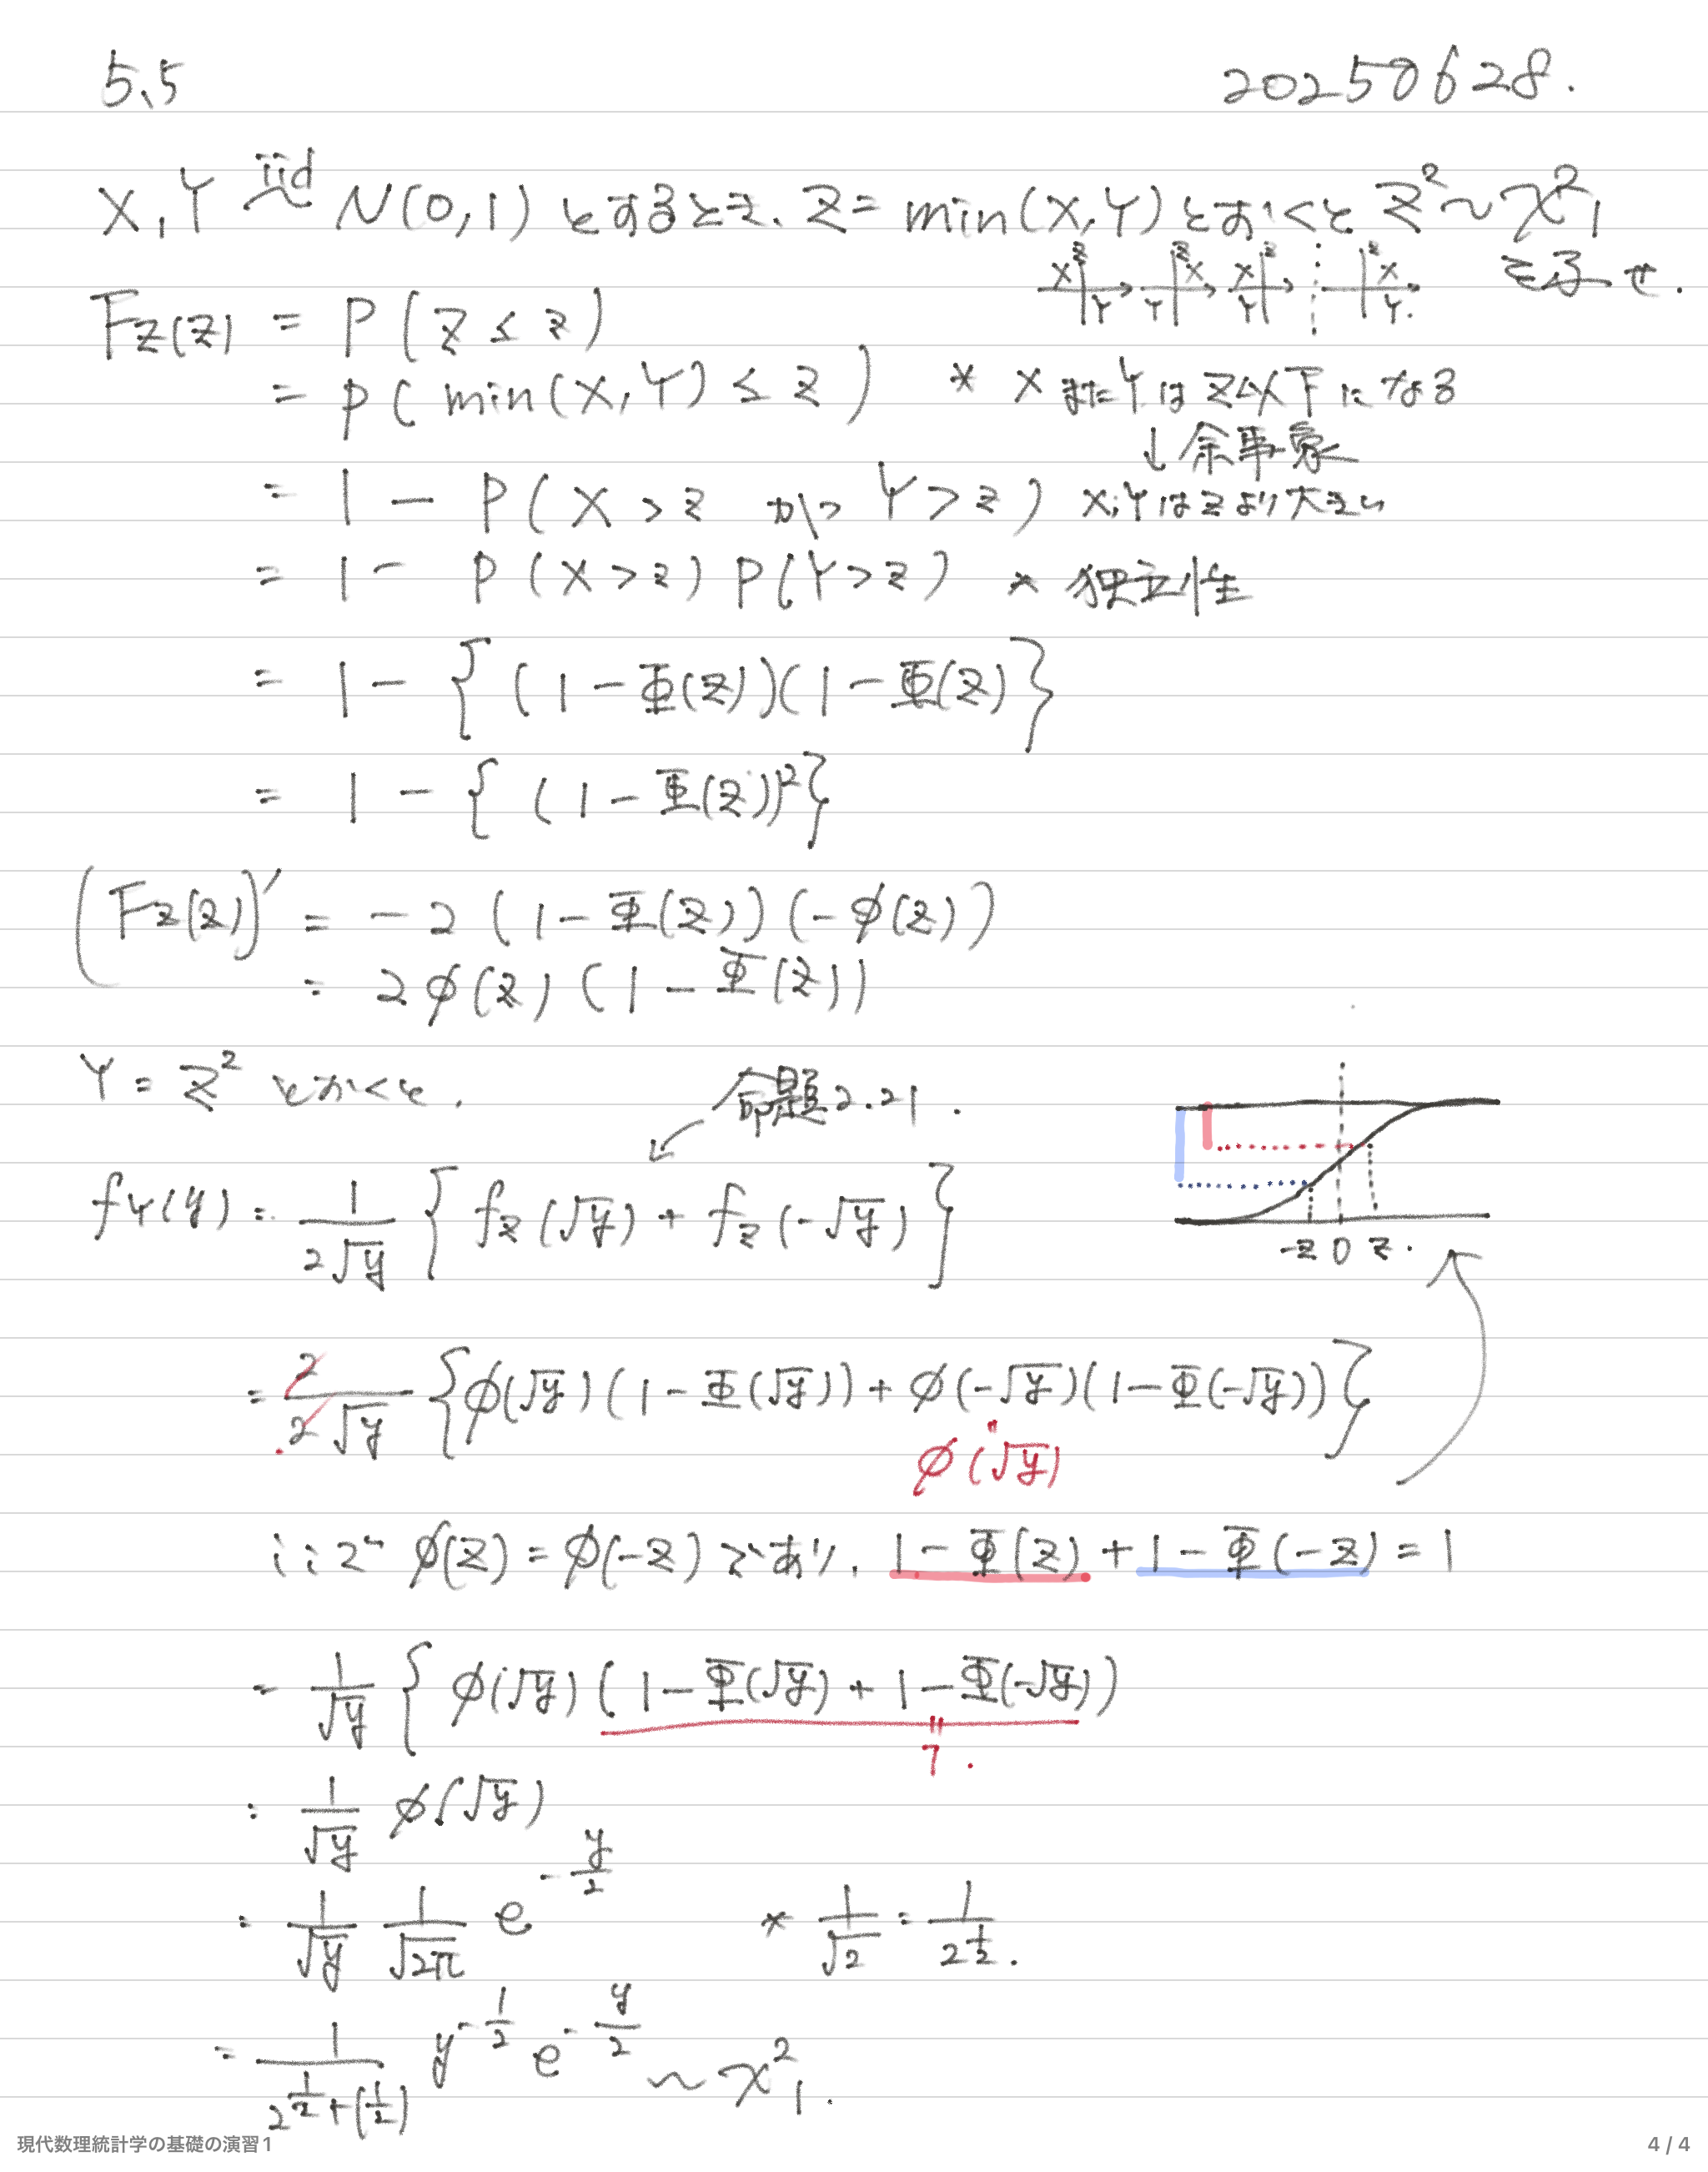 5.5 20250628.
X, Y iid ~ N(0,1) とするとき、Z = min(X,Y) とおくと Z² ~ χ²₁
を示せ.
X Z Y Z X Y X Z Y Z X Y.
F_Z(z) = P(Z ≤ z)
= P(min(X,Y) ≤ z) * X またY は z以下になる
↓余事象
= 1 - P(X > z かつ Y > z) X,Yはzより大きい
= 1 - P(X > z) P(Y > z) * 独立性
= 1 - { (1 - Φ(z))(1 - Φ(z) }
= 1 - { (1 - Φ(z))² }
(F_Z(z))' = -2 (1 - Φ(z)) (-φ(z))
= 2φ(z) (1 - Φ(z))
Y = Z² とおくと. 命題2.21.
f_Y(y) = 1/(2√y) { f_Z(√y) + f_Z(-√y) }
-z 0 z.
= 2/(2√y) { φ(√y)(1 - Φ(√y)) + φ(-√y)(1 - Φ(-√y)) }
" φ(√y)
ここで φ(z) = φ(-z) であり、1 - Φ(z) + 1 - Φ(-z) = 1
= 1/√y { φ(√y) (1 - Φ(√y) + 1 - Φ(-√y))
" 1.
= 1/√y φ(√y)
= 1/√y 1/√2π e^(-y/2) * 1/√2 = 1/2^(1/2).
= 1/(2^(1/2) Γ(1/2)) y^(-1/2) e^(-y/2) ~ χ²₁.
現代数理統計学の基礎の演習1 4 / 4